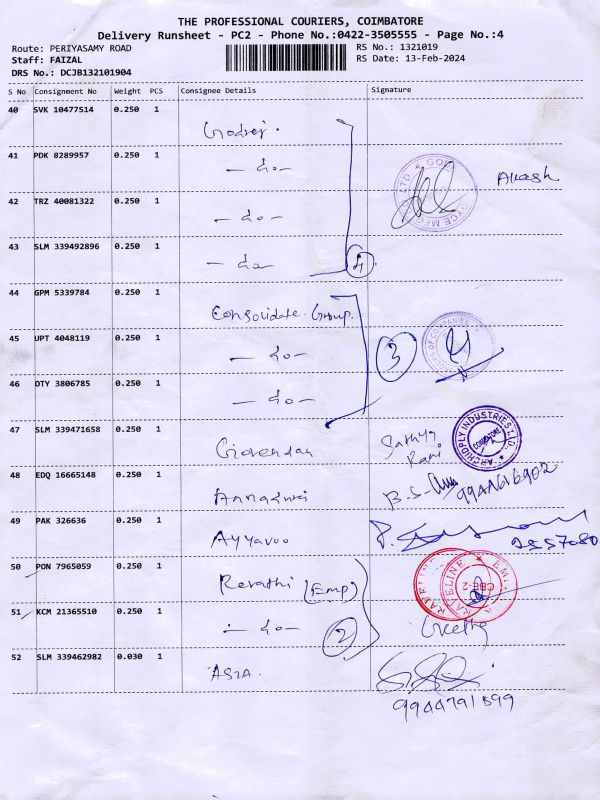 THE PROFESSIONAL COURIERS, COIMBATORE
Delivery Runsheet - PC2 - Phone No.:0422-3505555 - Page No.:4
Route: PERIYASAMY ROAD RS No.: 1321019
Staff: FAIZAL RS Date: 13-Feb-2024
DRS No.: DCJB132101904
S No Consignment No Weight PCS Consignee Details Signature
40 SVK 10477514 0.250 1
Godrej.
41 PDK 8289957 0.250 1
- do -
Akash
42 TRZ 40081322 0.250 1
- do -
43 SLM 339492896 0.250 1
- do - 4
44 GPM 5339784 0.250 1
Consolidate Group.
45 UPT 4048119 0.250 1
- do - 3
46 DTY 3806785 0.250 1
- do -
47 SLM 339471658 0.250 1
Sathya
Rani
ARCHIDPLY INDUSTRIES LTD.
48 EDQ 16665148 0.250 1
Annadurai B.S. 9944616902
49 PAK 326636 0.250 1
Ayyavoo
50 PON 7965059 0.250 1
Revathi (Emp)
51 KCM 21365510 0.250 1
- do - 2 Geetha
52 SLM 339462982 0.030 1
ASIA.